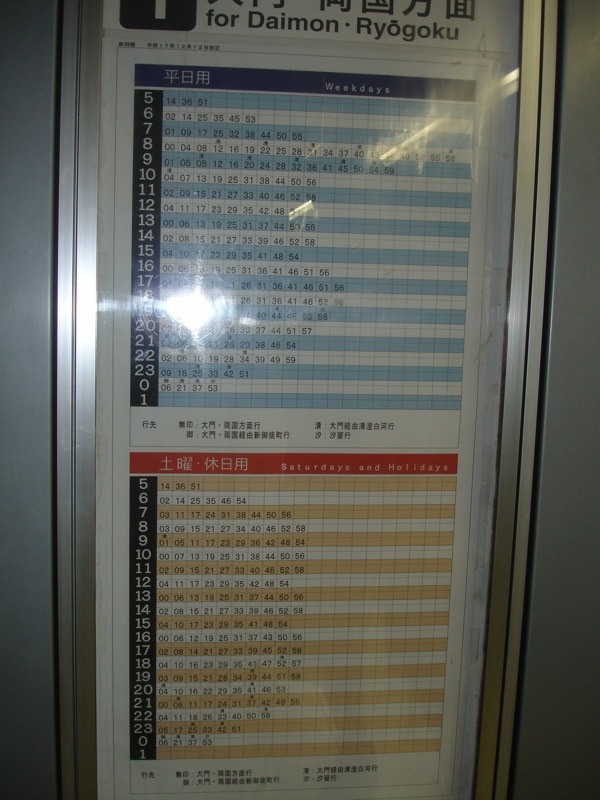 1 大門・両国方面
for Daimon・Ryōgoku
赤羽橋 平成17年12月12日改正
平日用 Weekdays
5 14 36 51
6 02 14 25 35 45 53
7 01 09 17 25 32 38 44 50 55
8 00 04 08 12 16 19 22 25 28 31 34 37 40 52 55 58
9 01 05 08 12 16 20 24 28 32 36 41 45 50 54 59
10 04 07 13 19 25 31 38 44 50 56
11 02 09 15 21 27 33 40 46 52 58
12 04 11 17 23 29 35 42 48
13 00 06 13 19 25 31 37 44 50 56
14 02 08 15 21 27 33 39 46 52 58
15 04 10 17 23 29 35 41 48 54
16 00 06 13 19 25 31 36 41 46 51 56
17 21 26 31 36 41 46 51 56
18 26 31 36 41 46 52
19 40 44 53 58
20 26 33 37 44 51 57
21 02 30 38 46 54
22 02 06 10 19 28 34 39 49 59
23 09 18 25 33 42 51
0 06 21 37 53
1
行先 無印：大門・両国方面行 清：大門経由清澄白河行
御：大門・両国経由新御徒町行 汐：汐留行
土曜・休日用 Saturdays and Holidays
5 14 36 51
6 02 14 25 35 46 54
7 03 11 17 24 31 38 44 50 56
8 03 09 15 21 27 34 40 46 52 58
9 01 05 11 17 23 29 36 42 48 54
10 00 07 13 19 25 31 38 44 50 56
11 02 09 15 21 27 33 40 46 52 58
12 04 11 17 23 29 35 42 48 54
13 00 06 13 19 25 31 37 44 50 56
14 02 08 15 21 27 33 39 46 52 58
15 04 10 17 23 29 35 41 48 54
16 00 06 12 19 25 31 37 43 50 56
17 02 08 14 21 27 33 39 45 52 58
18 04 10 16 23 29 35 41 47 52 57
19 03 09 15 21 28 34 39 44 51 58
20 04 10 16 22 29 35 41 46 53
21 00 06 11 17 24 31 37 42 49 56
22 04 11 18 26 33 40 50 58
23 05 17 25 33 42 51
0 06 21 37 53
1
行先 無印：大門・両国方面行 清：大門経由清澄白河行
御：大門・両国経由新御徒町行 汐：汐留行